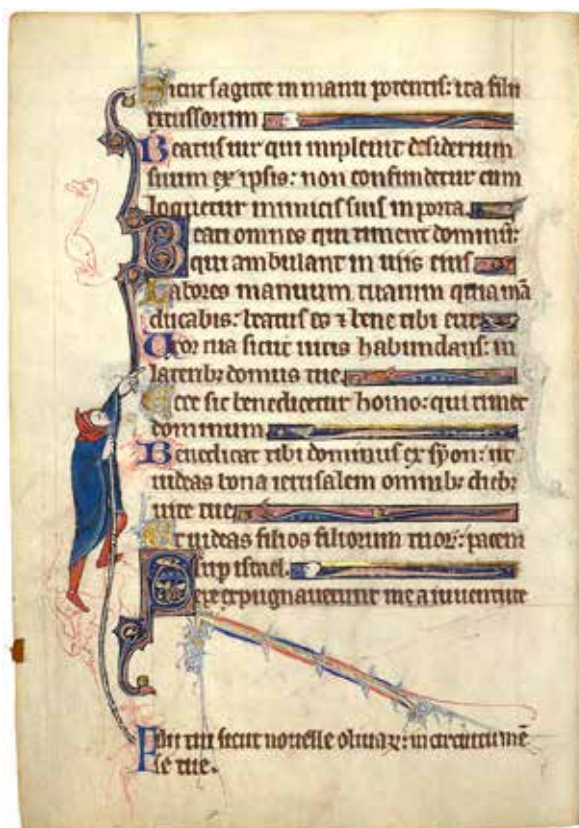 Sicut sagitte in manu potentis: ita filii
excussorum
Beatus uir qui impleuit desiderium
suum ex ipsis: non confundetur cum
loquetur inimicis suis in porta.
Beati omnes qui timent dominū:
qui ambulant in uiis eius
Labores manuum tuarum quia mā
ducabis: beatus es ⁊ bene tibi erit
Uxor tua sicut uitis habundans: in
lateribꝫ domus tue
Ecce sic benedicetur homo: qui timet
dominum
Benedicat tibi dominus ex syon: ut
uideas bona ierusalem omnibꝫ diebꝫ
uite tue
Et uideas filios filiorum tuoꝝ: pacem
sup israel.
Sepe expugnauerunt me a iuuentute
Filii tui sicut nouelle oliuaꝝ: in circuitu mē
se tue.